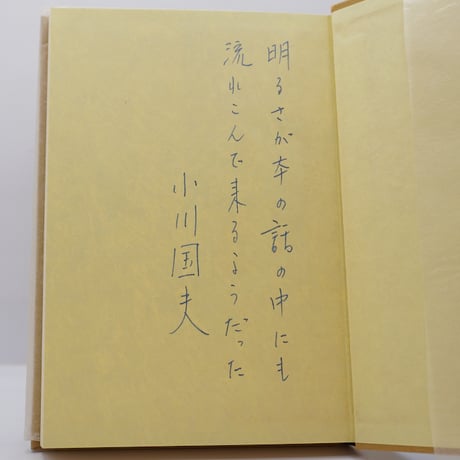 明るさが本の話の中にも
流れこんで来るようだった
小川国夫